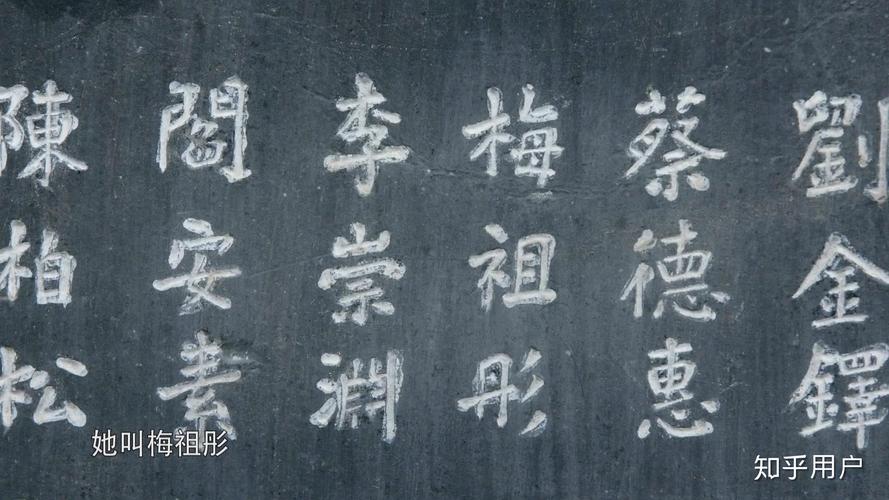 劉金鐸
蔡德惠
梅祖彤
李崇淵
閻安素
陳柏松
她叫梅祖彤
知乎用户